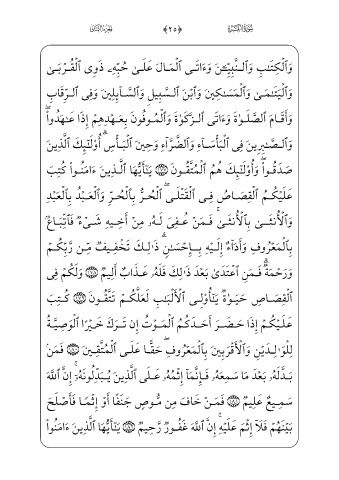 سُورَةُ البَقَرَةِ ﴿٢٥﴾ الجُزءُ الثَّانِي
وَٱلْكِتَـٰبِ وَٱلنَّبِيِّـۧنَ وَءَاتَى ٱلْمَالَ عَلَىٰ حُبِّهِۦ ذَوِى ٱلْقُرْبَىٰ
وَٱلْيَتَـٰمَىٰ وَٱلْمَسَـٰكِينَ وَٱبْنَ ٱلسَّبِيلِ وَٱلسَّآئِلِينَ وَفِى ٱلرِّقَابِ
وَأَقَامَ ٱلصَّلَوٰةَ وَءَاتَى ٱلزَّكَوٰةَ وَٱلْمُوفُونَ بِعَهْدِهِمْ إِذَا عَـٰهَدُوا۟ۖ
وَٱلصَّـٰبِرِينَ فِى ٱلْبَأْسَآءِ وَٱلضَّرَّآءِ وَحِينَ ٱلْبَأْسِۗ أُو۟لَـٰٓئِكَ ٱلَّذِينَ
صَدَقُوا۟ۖ وَأُو۟لَـٰٓئِكَ هُمُ ٱلْمُتَّقُونَ ١٧٧ يَـٰٓأَيُّهَا ٱلَّذِينَ ءَامَنُوا۟ كُتِبَ
عَلَيْكُمُ ٱلْقِصَاصُ فِى ٱلْقَتْلَىۖ ٱلْحُرُّ بِٱلْحُرِّ وَٱلْعَبْدُ بِٱلْعَبْدِ
وَٱلْأُنثَىٰ بِٱلْأُنثَىٰۚ فَمَنْ عُفِىَ لَهُۥ مِنْ أَخِيهِ شَىْءٌ فَٱتِّبَاعٌۢ
بِٱلْمَعْرُوفِ وَأَدَآءٌ إِلَيْهِ بِإِحْسَـٰنٍۗ ذَٰلِكَ تَخْفِيفٌ مِّن رَّبِّكُمْ
وَرَحْمَةٌۗ فَمَنِ ٱعْتَدَىٰ بَعْدَ ذَٰلِكَ فَلَهُۥ عَذَابٌ أَلِيمٌ ١٧٨ وَلَكُمْ فِى
ٱلْقِصَاصِ حَيَوٰةٌ يَـٰٓأُو۟لِى ٱلْأَلْبَـٰبِ لَعَلَّكُمْ تَتَّقُونَ ١٧٩ كُتِبَ
عَلَيْكُمْ إِذَا حَضَرَ أَحَدَكُمُ ٱلْمَوْتُ إِن تَرَكَ خَيْرًا ٱلْوَصِيَّةُ
لِلْوَٰلِدَيْنِ وَٱلْأَقْرَبِينَ بِٱلْمَعْرُوفِۖ حَقًّا عَلَى ٱلْمُتَّقِينَ ١٨٠ فَمَنۢ
بَدَّلَهُۥ بَعْدَ مَا سَمِعَهُۥ فَإِنَّمَآ إِثْمُهُۥ عَلَى ٱلَّذِينَ يُبَدِّلُونَهُۥٓۚ إِنَّ ٱللَّهَ
سَمِيعٌ عَلِيمٌ ١٨١ فَمَنْ خَافَ مِن مُّوصٍ جَنَفًا أَوْ إِثْمًا فَأَصْلَحَ
بَيْنَهُمْ فَلَآ إِثْمَ عَلَيْهِۚ إِنَّ ٱللَّهَ غَفُورٌ رَّحِيمٌ ١٨٢ يَـٰٓأَيُّهَا ٱلَّذِينَ ءَامَنُوا۟